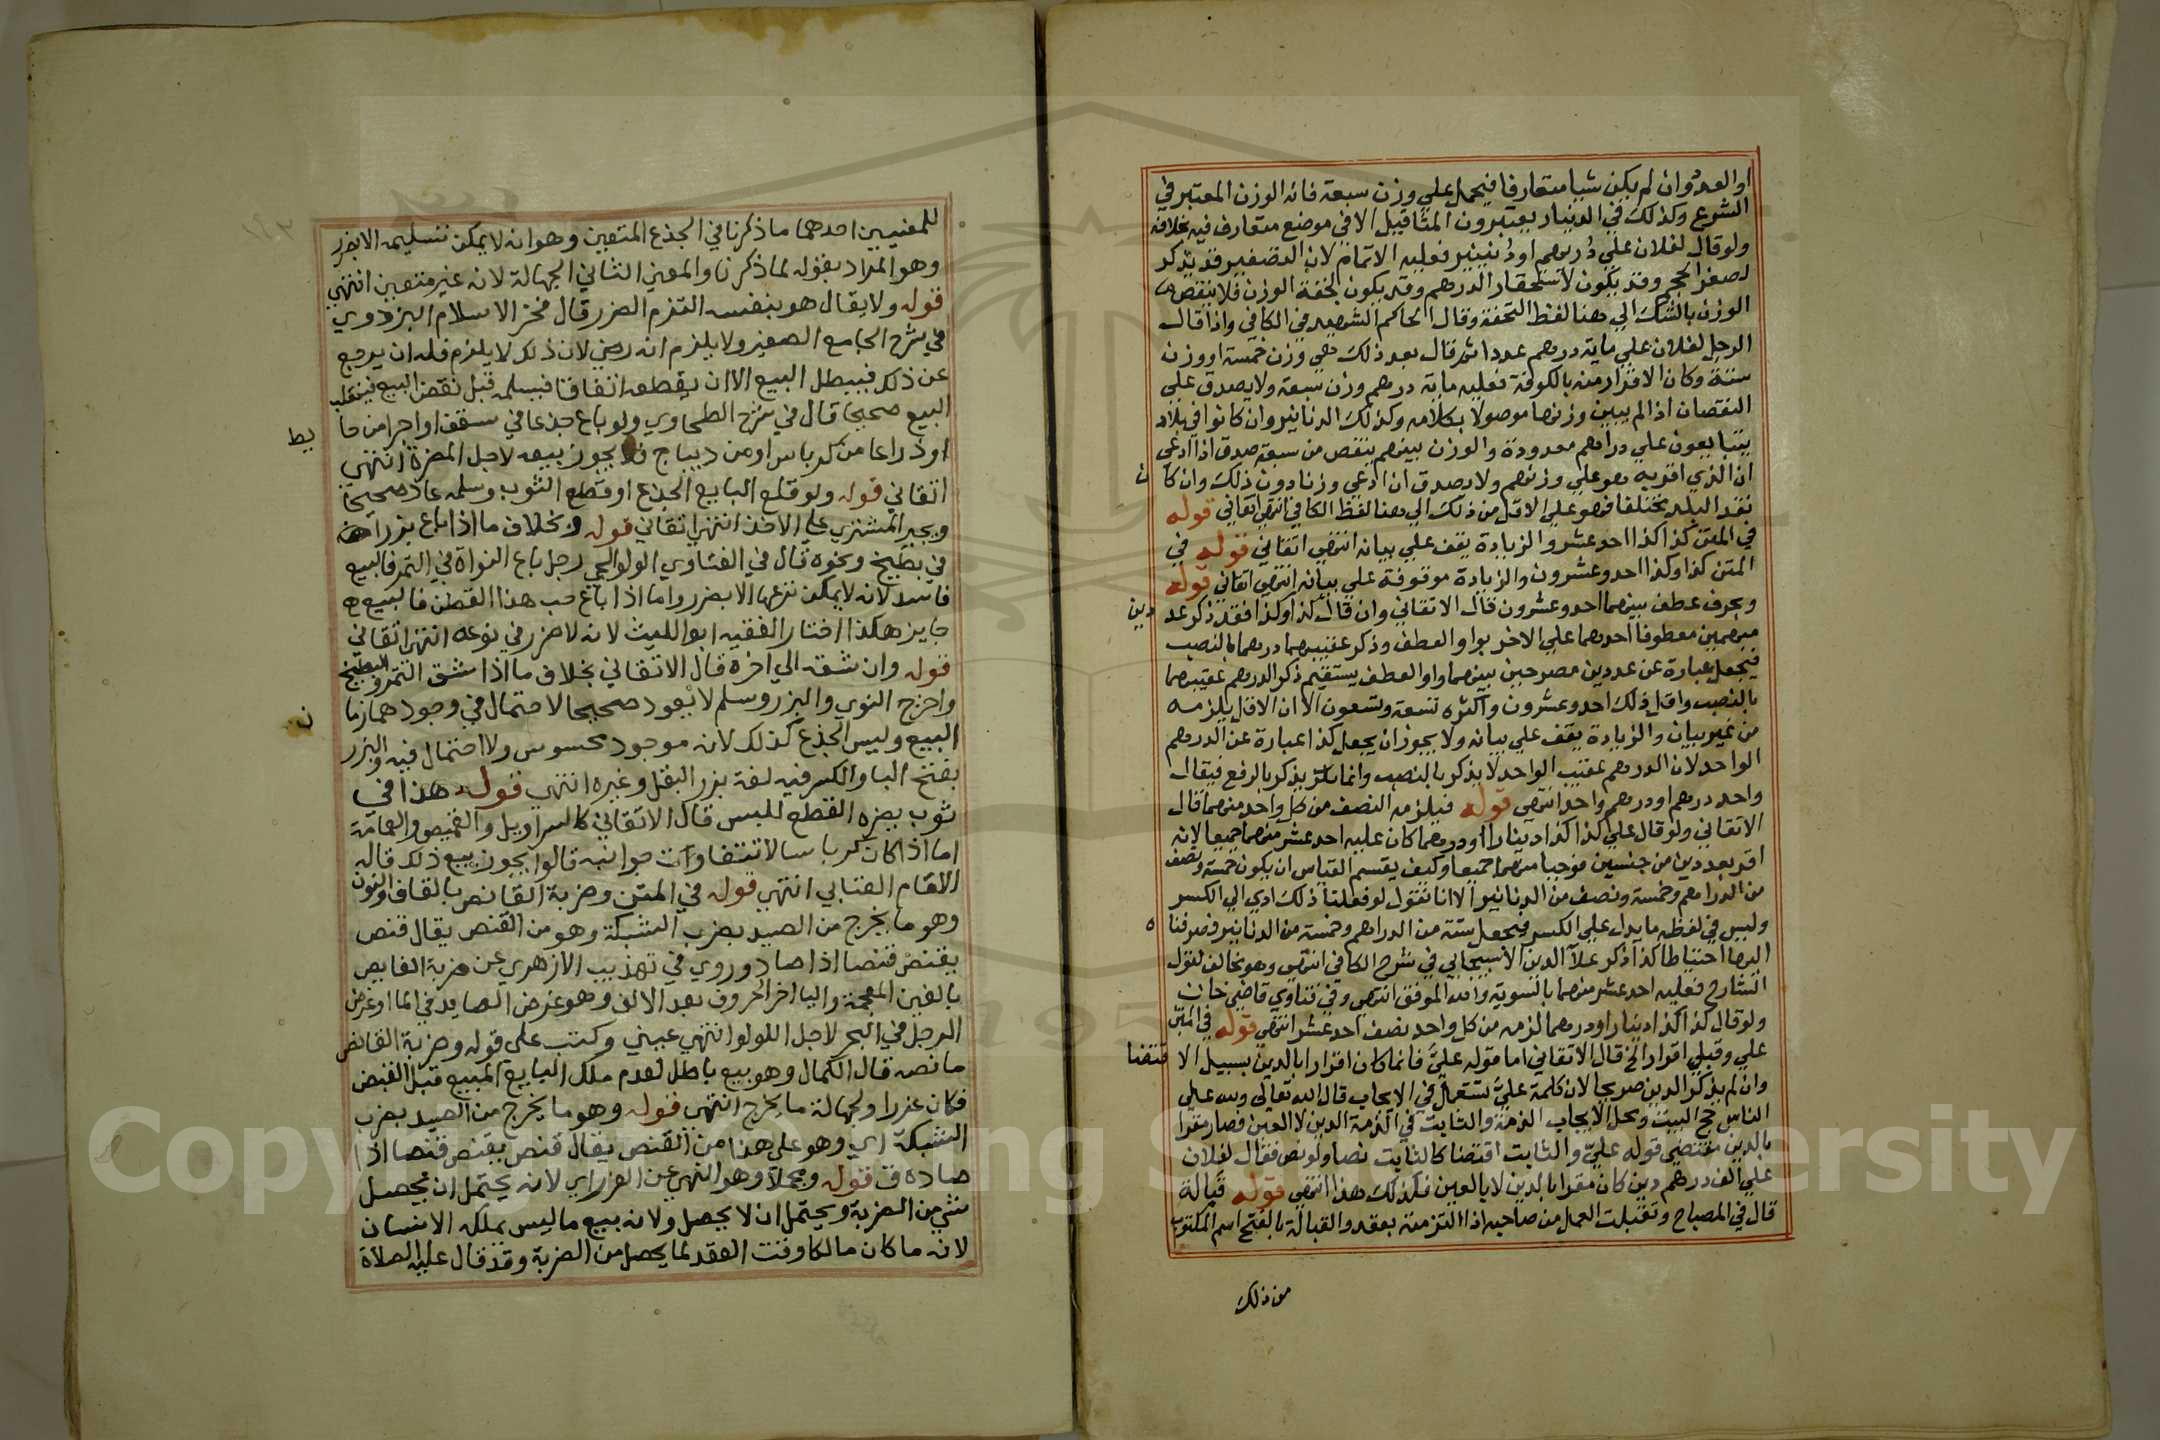 او العد وان لم يكن شيا متعارفا فيحمل علي وزن سبعة فانه الوزن المعتبر في
الشرع وكذلك في الدينار يعتبرون المثاقيل الا في موضع متعارف فيه بخلافه
ولو قال لفلان علي دريهم او دنينير فعليه الاتمام لان التصغير قد يذكر
لصغر الحجم وقد يكون لاستحقار الدرهم وقد يكون لخفة الوزن فلا ينقص
الوزن بالشك الي هنا لفظ التحفة وقال الحاكم الشهيد في الكافي واذا قال
الرجل لفلان علي ماية درهم عددا ثم قال بعد ذلك هي وزن خمسة او وزن
ستة وكان الاقرار منه بالكوفة فعليه ماية درهم وزن سبعة ولا يصدق علي
النقصان اذا لم يبين وزنها موصولا بكلامه وكذلك الدنانير وان كانوا في بلاد
يتبايعون علي دراهم معدودة والوزن بينهم ينقص من سبعة صدق اذا ادعي
ان الذي اقر به هو علي وزنهم ولا يصدق ان ادعي وزنا دون ذلك وان كا ن
نقد البلد مختلفا فهو علي الاقل من ذلك الي هنا لفظ الكافي انتهي اتقاني قوله
في المتن كذا كذا احد عشر والزيادة يقف علي بيانه انتهي اتقاني قوله في
المتن كذا وكذا احد وعشرون والزيادة موقوفة علي بيانه انتهي اتقاني قوله
وبحرف عطف بينهما احد وعشرون قال الاتقاني وان قال كذا وكذا فقد ذكر عد دين
مبهمين معطوفا احدهما علي الاخر بواو العطف وذكر عقيبهما درهما بالنصب
فيجعل عبارة عن عددين مصرحين بينهما واو العطف يستقيم ذكر الدرهم عقيبهما
بالنصب واقل ذلك احد وعشرون واكثره تسعة وتسعون الا ان الاقل يلزمه
من غير بيان والزيادة يقف علي بيانه ولا يجوز ان يجعل كذا عبارة عن الدرهم
الواحد لان الدرهم عقيب الواحد لا يذكر بالنصب وانما يذكر بالرفع فيقال
واحد درهم او درهم واحد انتهي قوله فيلزمه النصف من كل واحد منهما قال
الاتقاني ولو قال علي كذا كذا دينارا او درهما كان عليه احد عشر منهما جميعا لانه
اقر بعددين من جنسين فوجبا منهما جميعا وكيف يقسم القياس ان يكون خمسة ونصف
من الدراهم وخمسة ونصف من الدنانير الا انا نقول لو فعلنا ذلك ادي الي الكسر
وليس في لفظه ما يدل علي الكسر فيجعل ستة من الدراهم وخمسة من الدنانير فصرفنا ه
اليها احتياطا كذا ذكر علا الدين الاسبيجابي في شرح الكافي انتهي وهو مخالف لقول
الشارح فعليه احد عشر منهما بالسوية والله الموفق انتهي وفي فتاوي قاضي خان
ولو قال كذا كذا دينارا ودرهما لزمه من كل واحد نصف احد عشر انتهي قوله في المتن
علي وقبلي اقرار الخ قال الاتقاني اما قوله علي فانما كان اقرارا بالدين بسبيل الا قتضا
وان لم يذكر الدين صريحا لان كلمة علي تستعمل في الايجاب قال الله تعالي ولله علي
الناس حج البيت ومحل الايجاب الذمة والثابت في الذمة الدين لا العين فصار مقرا
بالدين مقتضي قوله علي والثابت اقتضا كالثابت نصا ولو نص فقال لفلان
علي الف درهم دين كان مقرا بالدين لا بالعين فكذلك هذا انتهي قوله قبالة
قال في المصباح وتقبلت العمل من صاحبه اذا التزمته بعقد والقبالة بالفتح اسم المكتوب
من ذلك
للمعنيين احدهما ما ذكرنا في الجذع المتعين وهو انه لا يمكن تسليمه الا بضرر
وهو المراد بقوله لما ذكرنا والمعني الثاني الجهالة لانه غير متعين انتهي
قوله ولا يقال هو بنفسه التزم الضرر قال فخر الاسلام البزدوي
في شرح الجامع الصغير ولا يلزم انه رضي لان ذلك لا يلزم فله ان يرجع
عن ذلك فيبطل البيع الا ان يقطعه اتفاقا فيسلمه قبل نقض البيع فينقلب
البيع صحيحا قال في شرح الطحاوي ولو باع جذعا في سقف او اجرا من حا يط
او ذراعا من كرباس او من ديباج لا يجوز بيعه لاجل المضرة انتهي
اتقاني قوله ولو قلع البايع الجذع او قطع الثوب وسلمه عاد صحيحا
ويجبر المشتري علي الاخذ انتهي اتقاني قوله وبخلاف ما اذا باع بزرا
في بطيخ ونحوه قال في الفتاوي الولوالجي رجل باع النواة في التمر فالبيع
فاسد لانه لا يمكن نزعها الا بضرر واما اذا باع حب هذا القطن فالبيع
جايز هكذا اختار الفقيه ابو الليث لانه لا ضرر في نزعه انتهي اتقاني
قوله وان شقه الي اخره قال الاتقاني بخلاف ما اذا شق التمر والبطيخ
واخرج النوي والبزر وسلم لا يعود صحيحا لاحتمال في وجودهما زما ن
البيع وليس الجذع كذلك لانه موجود محسوس ولا احتمال فيه والبزر
بفتح البا والكسر فيه لغة بزر البقل وغيره انتهي قوله هذا في
ثوب يضره القطع للبس قال الاتقاني كالسراويل والقميص والعمامة
اما اذا كان كرباسا لا تتفاوت جوانبه قالوا يجوز بيع ذلك قاله
الامام العتابي انتهي قوله في المتن وضربة القانص بالقاف والنون
وهو ما يخرج من الصيد بضرب الشبكة وهو من القنص يقال قنص
يقنص قنصا اذا صاد وروي في تهذيب الازهري عن ضربة الغايص
بالغين المعجمة واليا اخر الحروف بعد الالف وهو غوص الصايد في الما او غوص
الرجل في البحر لاجل اللولو انتهي عيني وكتب علي قوله وضربة القانص
ما نصه قال الكمال وهو بيع باطل لعدم ملك البايع المبيع قبل القبض
فكان غررا ولجهالة ما يخرج انتهي قوله وهو ما يخرج من الصيد بضرب
الشبكة اي وهو علي هذا من القنص يقال قنص يقنص قنصا اذا
صاده ق قوله وهو النهي عن الغرر اي لانه يحتمل ان يحصل
شي من الضربة ويحتمل ان لا يحصل ولانه بيع ما ليس بملكه الانسان
لانه ما كان مالكا وقت العقد لما يحصل من الضربة وقد قال عليه الصلاة
Copyright © King Saud University